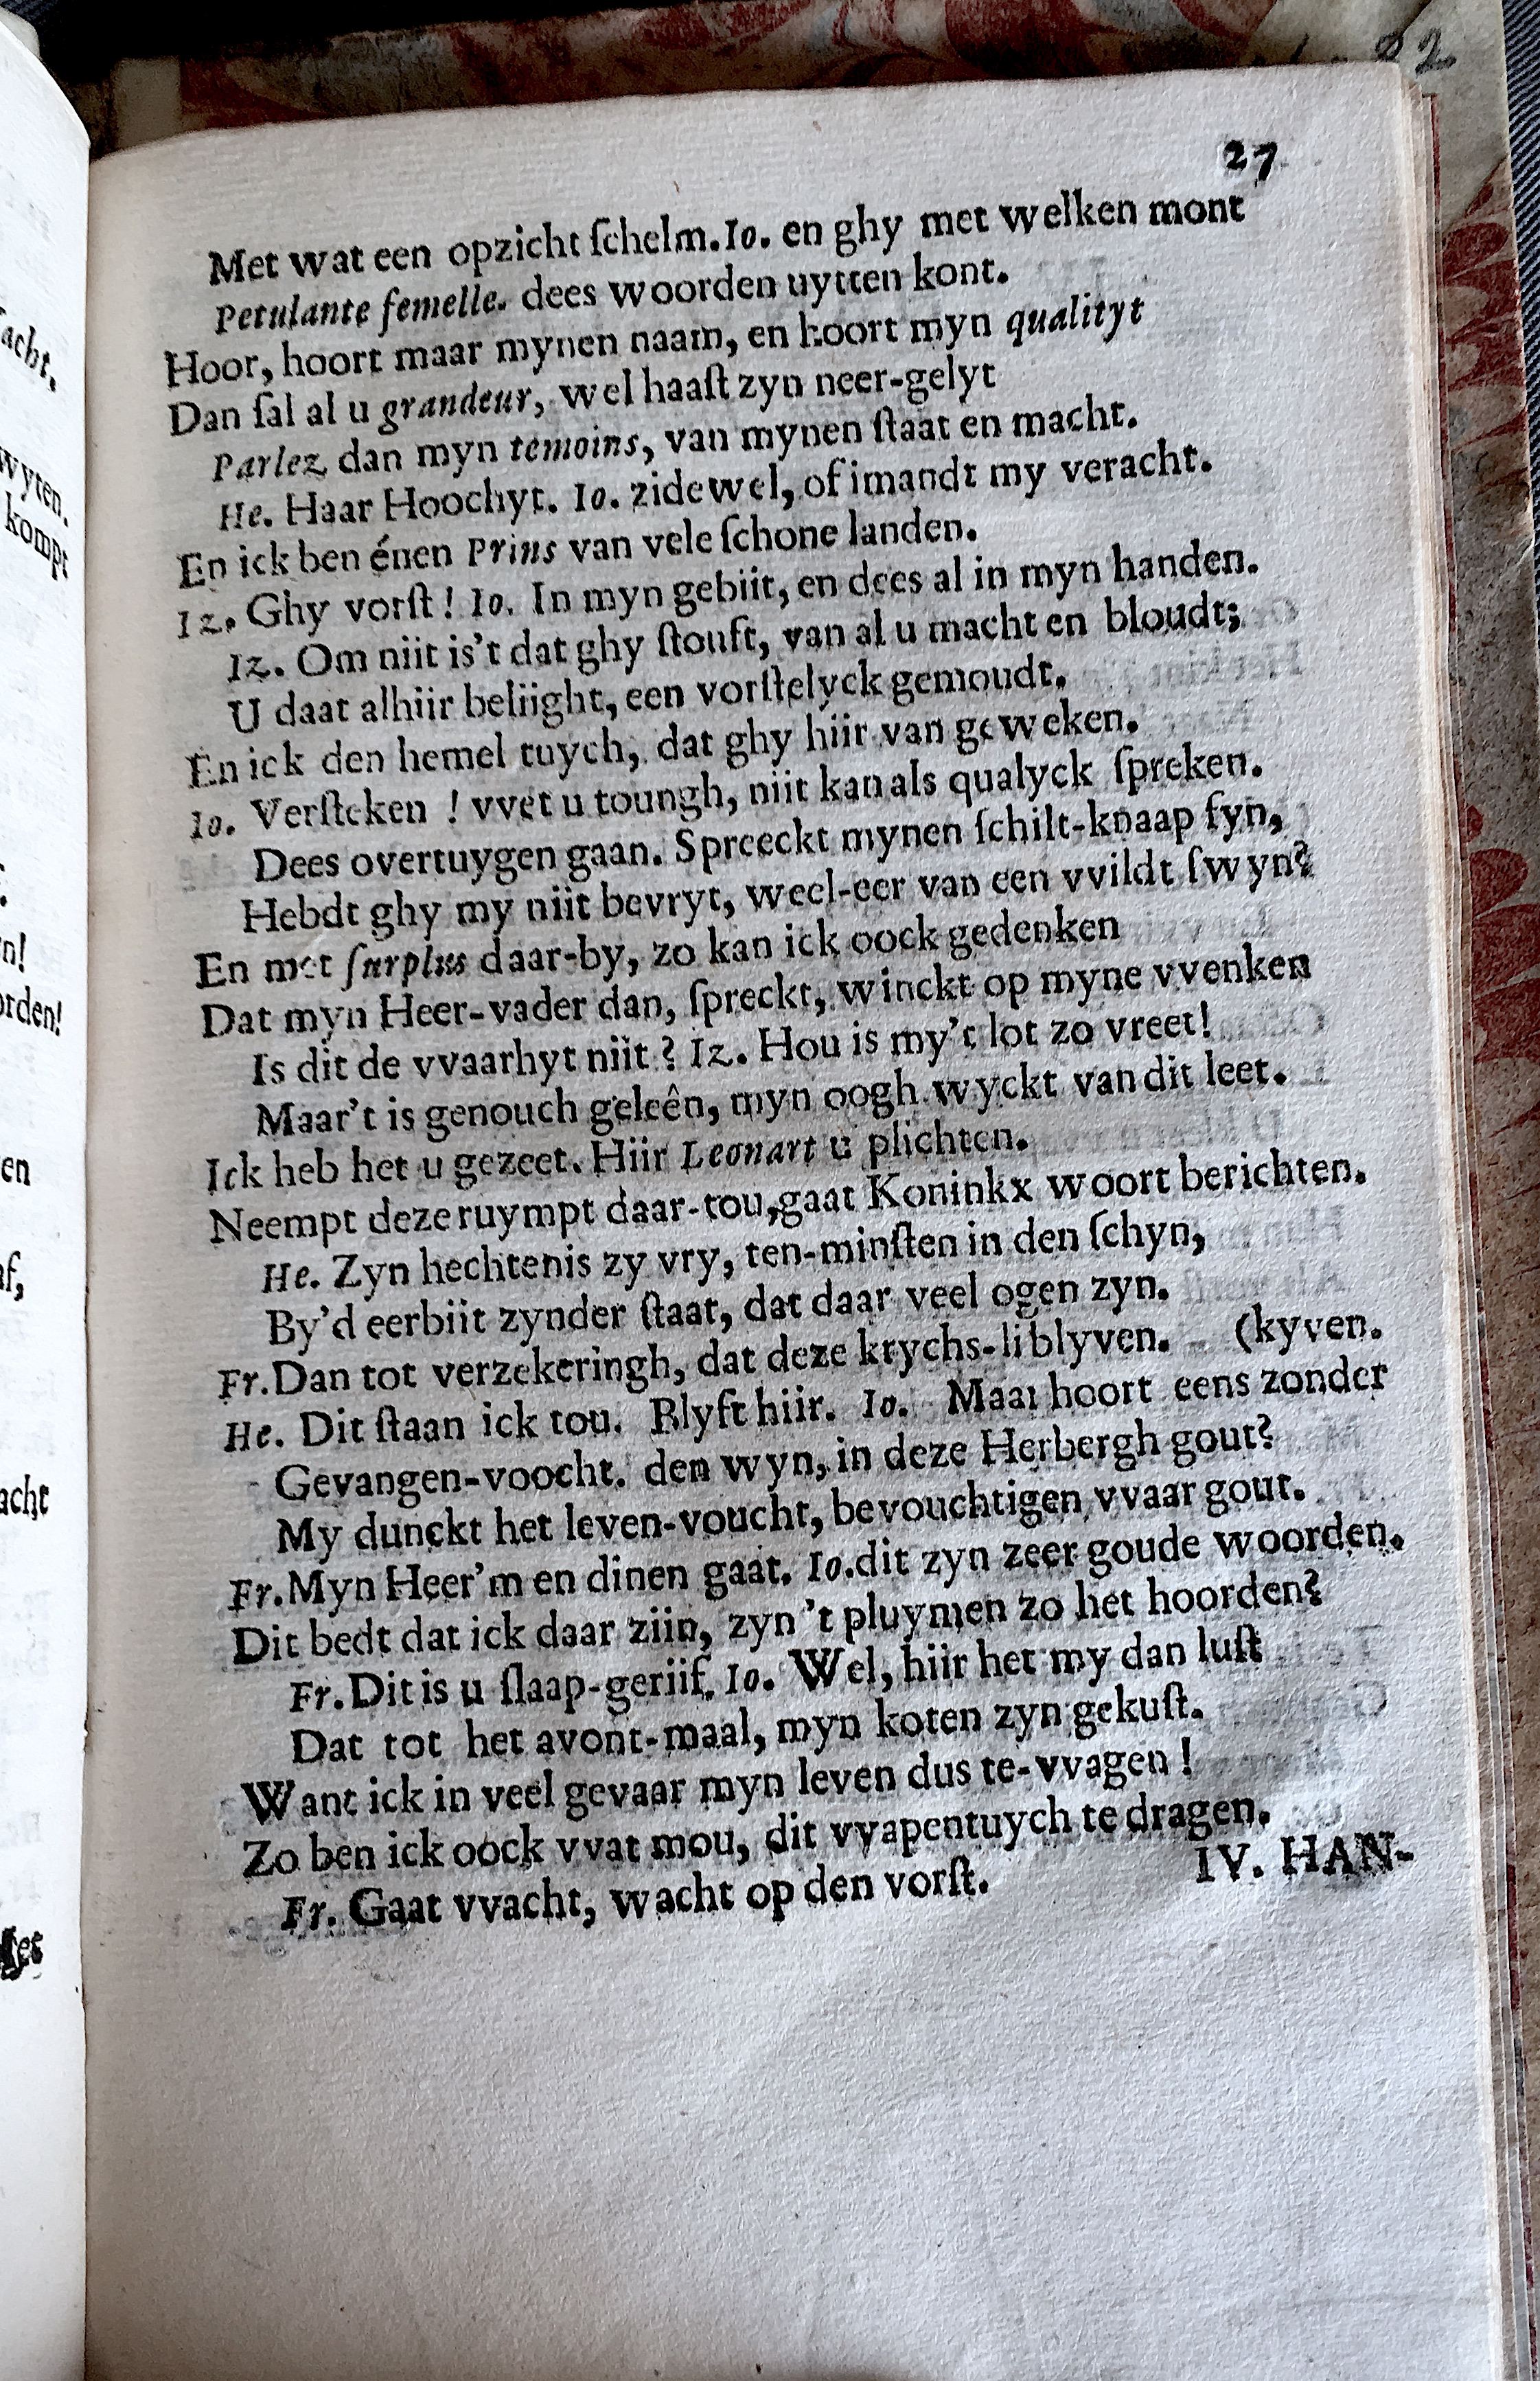 27
Met wat een opzicht ſchelm. Io. en ghy met welken mont
Petulante femelle. dees woorden uytten kont.
Hoor, hoort maar mynen naam, en hoort myn qualityt
Dan ſal al u grandeur, wel haaſt zyn neer-gelyt
Parlez dan myn temoins, van mynen ſtaat en macht.
He. Haar Hoochyt. Io. zide wel, of imandt my veracht.
En ick ben énen Prins van vele ſchone landen.
Iz. Ghy vorſt! Io. In myn gebiit, en dees al in myn handen.
Iz. Om niit is't dat ghy ſtouft, van al u macht en bloudt;
U daat alhiir beliight, een vorſtelyck gemoudt.
En ick den hemel tuych, dat ghy hiir van geweken.
Io. Verſteken ! vvet u toungh, niit kan als qualyck ſpreken.
Dees overtuygen gaan. Spreeckt mynen ſchilt-knaap fyn,
Hebdt ghy my niit bevryt, weel-eer van een vvildt ſwyn?
En met ſurplus daar-by, zo kan ick oock gedenken
Dat myn Heer-vader dan, ſpreckt, winckt op myne vvenken
Is dit de vvaarhyt niit ? Iz. Hou is my't lot zo vreet!
Maar't is genouch geleên, myn oogh wyckt van dit leet.
Ick heb het u gezeet. Hiir Leonart u plichten.
Neempt deze ruympt daar-tou, gaat Koninkx woort berichten.
He. Zyn hechtenis zy vry, ten-minſten in den ſchyn,
By'd eerbiit zynder ſtaat, dat daar veel ogen zyn.
Fr. Dan tot verzekeringh, dat deze krychs-li blyven. (kyven.
He. Dit ſtaan ick tou. Blyft hiir. Io. Maar hoort eens zonder
Gevangen-voocht. den wyn, in deze Herbergh gout?
My dunckt het leven-voucht, bevouchtigen vvaar gout.
Fr. Myn Heer'm en dinen gaat. Io. dit zyn zeer goude woorden.
Dit bedt dat ick daar ziin, zyn 't pluymen zo het hoorden?
Fr. Dit is u ſlaap-geriif. Io. Wel, hiir het my dan luſt
Dat tot het avont-maal, myn koten zyn gekuſt.
Want ick in veel gevaar myn leven dus te-vvagen !
Zo ben ick oock vvat mou, dit vvapentuych te dragen.
Fr. Gaat vvacht, wacht op den vorſt.
IV. HAN-